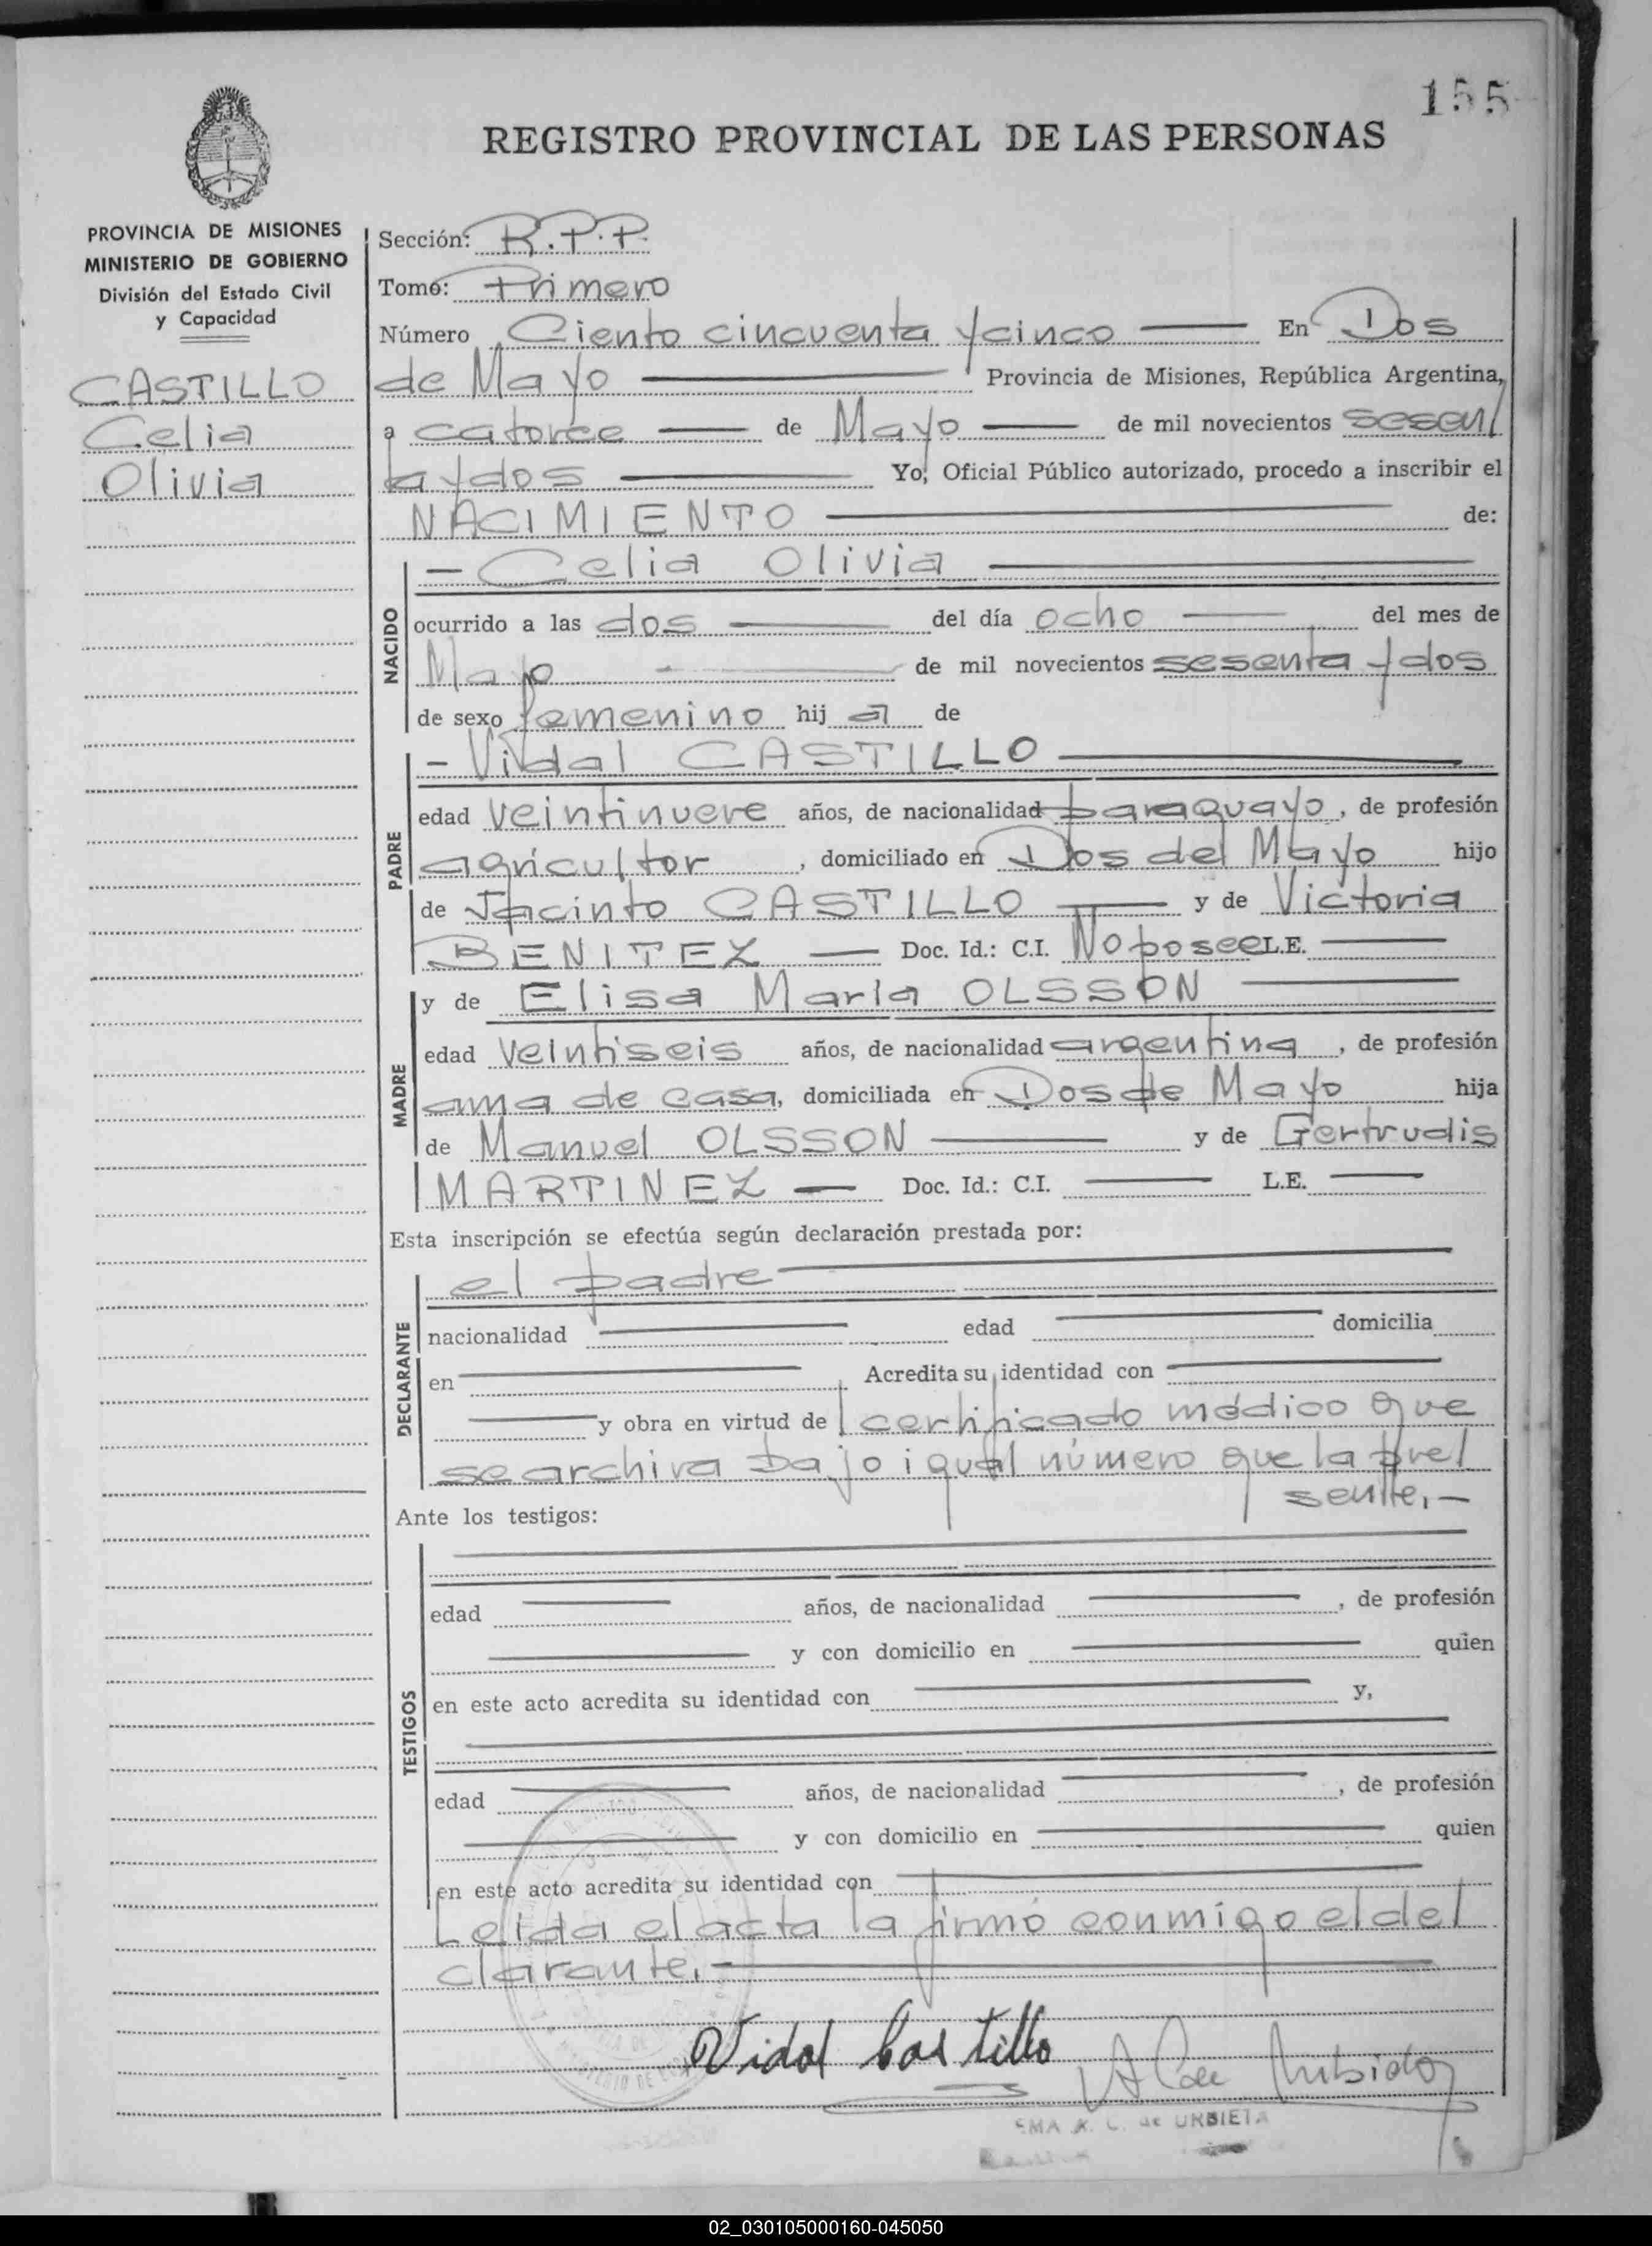 155
REGISTRO PROVINCIAL DE LAS PERSONAS
PROVINCIA DE MISIONES
MINISTERIO DE GOBIERNO
División del Estado Civil
y Capacidad
CASTILLO
Celia
Olivia
Sección: R.P.P.
Tomo: Primero
Número Ciento cincuenta y cinco En Dos
de Mayo Provincia de Misiones, República Argentina,
a catorce de Mayo de mil novecientos sesen/
ta y dos Yo, Oficial Público autorizado, procedo a inscribir el
NACIMIENTO de:
NACIDO
- Celia Olivia
ocurrido a las dos del día ocho del mes de
Mayo de mil novecientos sesenta y dos
de sexo femenino hij a de
PADRE
- Vidal CASTILLO
edad veintinueve años, de nacionalidad paraguayo, de profesión
agricultor, domiciliado en Dos del Mayo hijo
de Jacinto CASTILLO y de Victoria
BENITEZ Doc. Id.: C.I. No posee L.E.
MADRE
y de Elisa María OLSSON
edad veintiseis años, de nacionalidad argentina, de profesión
ama de casa, domiciliada en Dos de Mayo hija
de Manuel OLSSON y de Gertrudis
MARTINEZ Doc. Id.: C.I. L.E.
Esta inscripción se efectúa según declaración prestada por:
DECLARANTE
el padre
nacionalidad edad domicilia
en Acredita su identidad con
y obra en virtud de/ certificado médico que
se archiva bajo igual número que la pre/
sente.-
Ante los testigos:
TESTIGOS
edad años, de nacionalidad , de profesión
y con domicilio en quien
en este acto acredita su identidad con y,
edad años, de nacionalidad , de profesión
y con domicilio en quien
en este acto acredita su identidad con
Leida el acta la firmó conmigo el de/
clarante.-
Vidal Castillo
de URBIETA
02_030105000160-045050